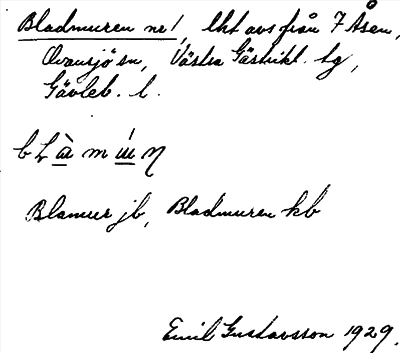 Bladmuren nr 1, lht avs från 7 Åsen,
Ovansjö sn, Västra Gästrikl. tg,
Gävleb. l.
bLà m ú̵ η
Blamur jb, Bladmuren kb
Emil Gustavsson 1929.